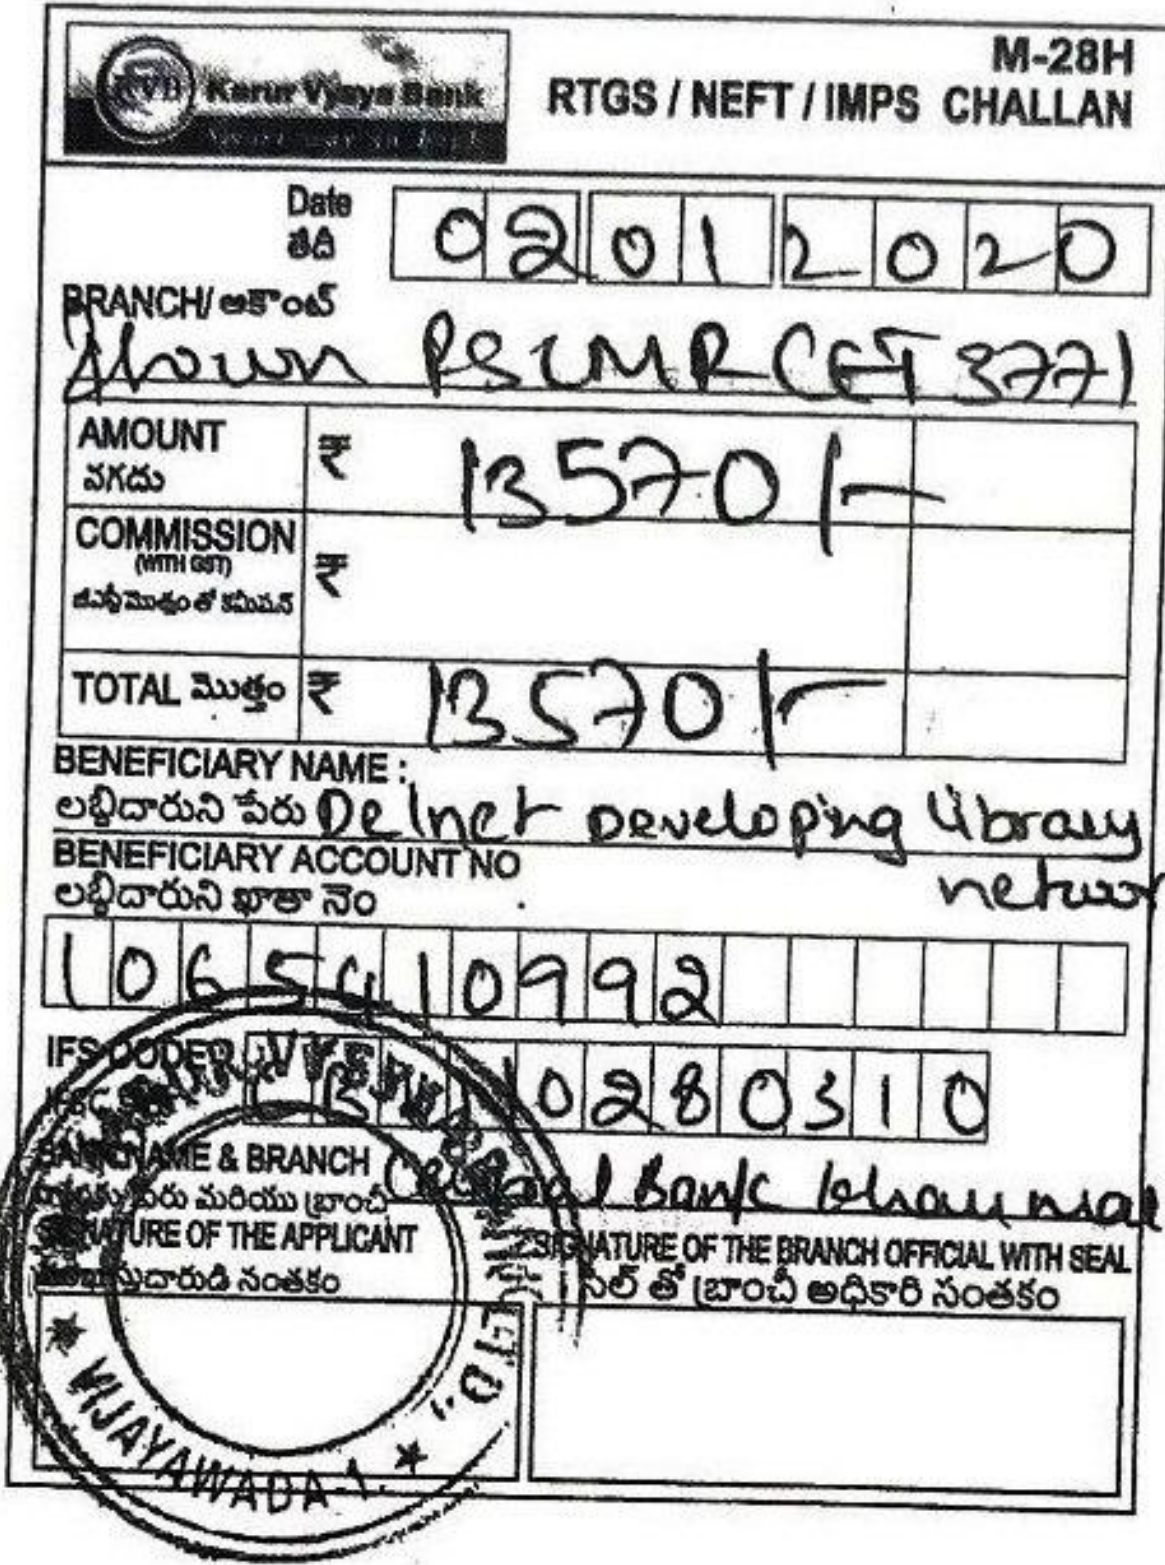 KVB Karur Vysya Bank
M-28H
RTGS / NEFT / IMPS CHALLAN
Date
తేదీ
02012020
BRANCH/ అకౌంట్
PSCMRCET 3771
AMOUNT
నగదు
₹ 13570/-
COMMISSION
(WITH GST)
జీఎస్టీమొత్తం తో కమీషన్
₹
TOTAL మొత్తం ₹ 13570/-
BENEFICIARY NAME :
లబ్ధిదారుని పేరు Delnet Developing Library
BENEFICIARY ACCOUNT NO
networ
లబ్ధిదారుని ఖాతా నెం
1065410992
IFS CODE
0280310
BANK NAME & BRANCH
పేరు మరియు బ్రాంచీ Bank
SIGNATURE OF THE APPLICANT
సంతకం
SIGNATURE OF THE BRANCH OFFICIAL WITH SEAL
సీల్ తో బ్రాంచీ అధికారి సంతకం
LTD.
★ VIJAYAWADA-1. ★